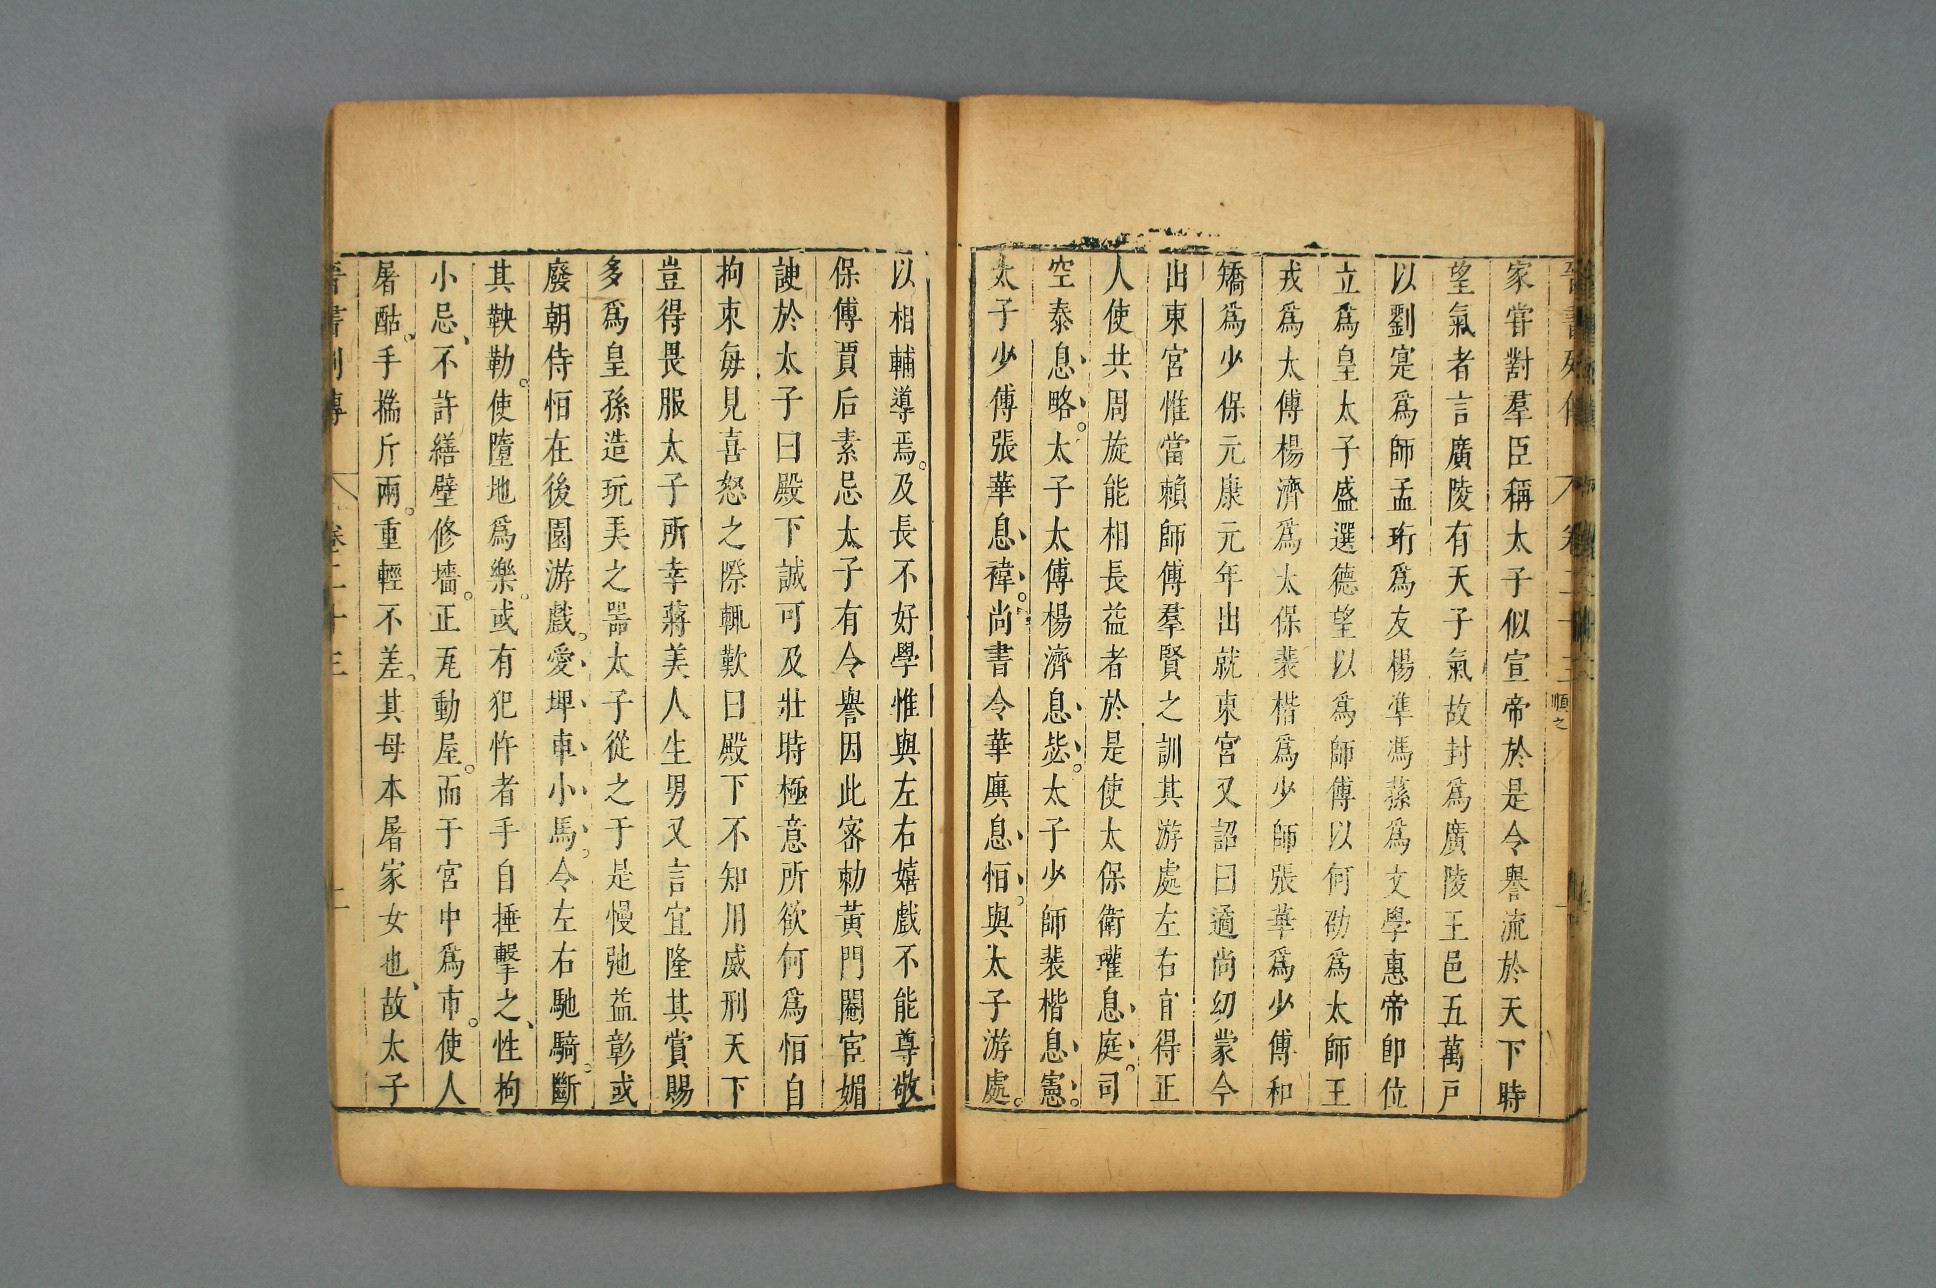 家嘗對羣臣稱太子似宣帝於是令譽流於天下時
望氣者言廣陵有天子氣故封爲廣陵王邑五萬戸
以劉寔爲師孟珩爲友楊準馮蓀爲文學惠帝卽位
立爲皇太子盛選德望以爲師傅以何劭爲太師王
戎爲太傅楊濟爲太保裴楷爲少師張華爲少傅和
矯爲少保元康元年出就東宮又詔曰遹尚幼蒙今
出東宮惟當賴師傅羣賢之訓其游處左右宜得正
人使共周旋能相長益者於是使太保衛瓘息庭。司
空泰息略。太子太傅楊濟息毖。太子少師裴楷息憲。
太子少傅張華息禕。尚書令華廙息恒。與太子游處。
以相輔導焉。及長不好學惟與左右嬉戲不能尊敬
保傅賈后素忌太子有令譽因此宻勅黃門閹宦媚
諛於太子曰殿下誠可及壯時極意所欲何爲恒自
拘束每見喜怒之際輒歎曰殿下不知用威刑天下
豈得畏服太子所幸蔣美人生男又言宜隆其賞賜
多爲皇孫造玩弄之噐太子從之于是慢弛益彰或
廢朝侍恒在後園游戲。愛埤車小馬。令左右馳騎。斷
其鞅勒。使墮地爲樂。或有犯忤者手自捶擊之、性拘
小忌、不許繕壁修墻。正瓦動屋。而于宮中爲市。使人
屠酤。手揣斤兩。重輕不差。其母本屠家女也、故太子
晉書列傳 卷二十三